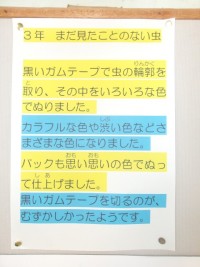 3年　まだ見たことのない虫
黒いガムテープで虫の輪郭を
取り、その中をいろいろな色
でぬりました。
カラフルな色や渋い色などさ
まざまな色になりました。
バックも思い思いの色でぬっ
て仕上げました。
黒いガムテープを切るのが、
むずかしかったようです。